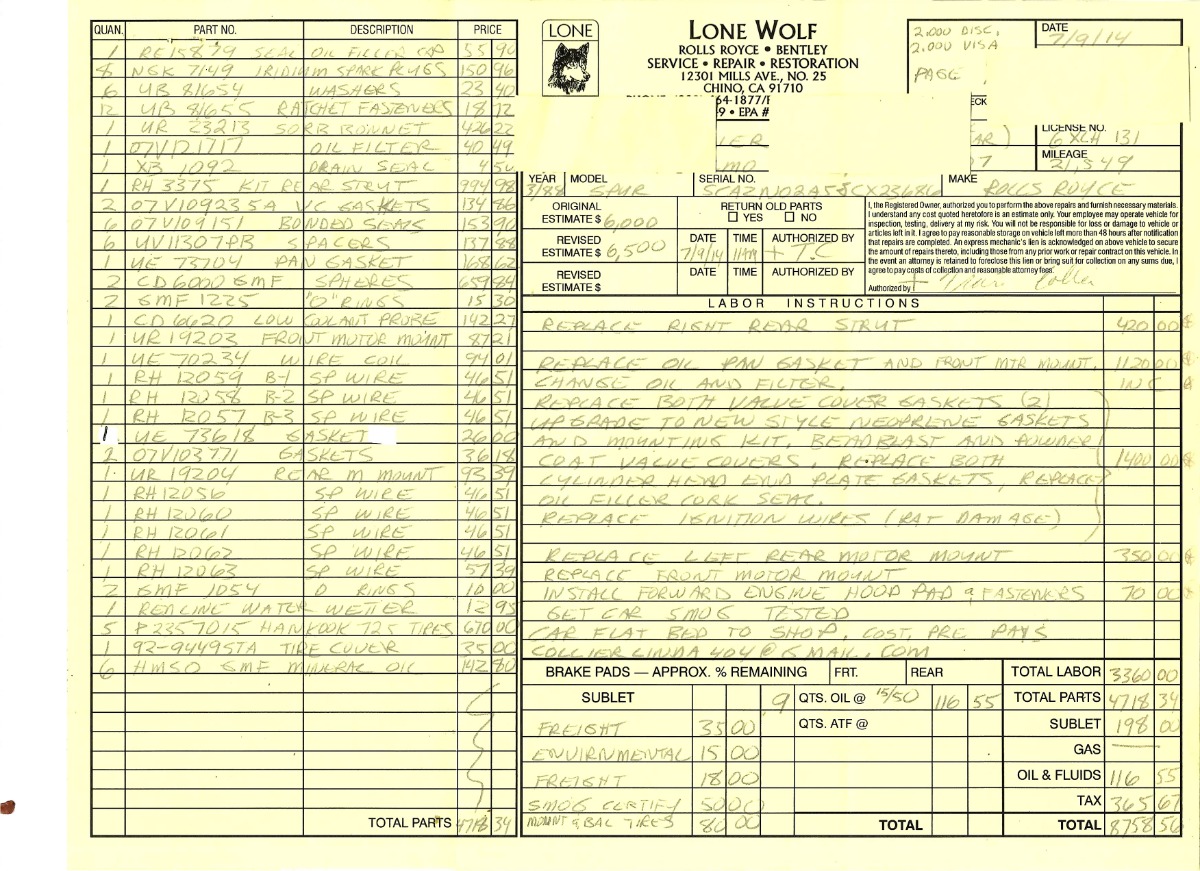 QUAN. PART NO. DESCRIPTION PRICE
1 RE15879 SEAL OIL FILLER CAP 55 90
8 NGK 7149 IRIDIUM SPARK PLUGS 150 96
6 UB 81654 WASHERS 23 40
12 UB 81655 RATCHET FASTENERS 18 72
1 UR 23213 SORB BONNET 426 22
1 07V121717 OIL FILTER 40 49
1 XB 1092 DRAIN SEAL 4 50
1 RH 3375 KIT REAR STRUT 994 98
2 07V109235A V/C GASKETS 134 86
6 07V109151 BONDED SEALS 153 90
6 UV11307PB SPACERS 137 88
1 UE 73704 PAN GASKET 168 62
2 CD6000 GMF SPHERES 659 84
2 GMF 1225 "O" RINGS 15 30
1 CD 6620 LOW COOLANT PROBE 142 27
1 UR 19203 FRONT MOTOR MOUNT 87 21
1 UE 70234 WIRE COIL 94 01
1 RH 12059 B-1 SP WIRE 46 51
1 RH 12058 B-2 SP WIRE 46 51
1 RH 12057 B-3 SP WIRE 46 51
1 UE 73618 GASKET 26 00
2 07V103771 GASKETS 36 18
1 UR 19204 REAR M MOUNT 93 39
1 RH12056 SP WIRE 46 51
1 RH 12060 SP WIRE 46 51
1 RH 12061 SP WIRE 46 51
1 RH 12062 SP WIRE 46 51
1 RH 12063 SP WIRE 57 39
2 GMF 1054 O RINGS 10 00
1 REDLINE WATER WETTER 12 95
5 P2357015 HANKOOK 725 TIRES 670 00
1 92-94495TA TIRE COVER 35 00
6 HMSO GMF MINERAL OIL 142 80
TOTAL PARTS 4718 34
LONE
LONE WOLF
ROLLS ROYCE • BENTLEY
SERVICE • REPAIR • RESTORATION
12301 MILLS AVE., NO. 25
CHINO, CA 91710
64-1877/F
9 • EPA #
2,000 DISC,
2,000 VISA
PAGE
DATE 7/9/14
LICENSE NO. 6XCH 131
MILEAGE 21,549
YEAR 3/88 MODEL SPUR SERIAL NO. MAKE ROLLS ROYCE
ORIGINAL ESTIMATE $ 6,000 RETURN OLD PARTS YES NO
REVISED ESTIMATE $ 6,500 DATE 7/9/14 TIME 11AM AUTHORIZED BY + T.C
REVISED ESTIMATE $ DATE TIME AUTHORIZED BY
I, the Registered Owner, authorized you to perform the above repairs and furnish necessary materials.
I understand any cost quoted heretofore is an estimate only. Your employee may operate vehicle for
inspection, testing, delivery at my risk. You will not be responsible for loss or damage to vehicle or
articles left in it. I agree to pay reasonable storage on vehicle left more than 48 hours after notification
that repairs are completed. An express mechanic's lien is acknowledged on above vehicle to secure
the amount of repairs thereto, including those from any prior work or repair contract on this vehicle. In
the event an attorney is retained to foreclose this lien or bring suit for collection on any sums due, I
agree to pay costs of collection and reasonable attorney fees.
Authorized by
LABOR INSTRUCTIONS
REPLACE RIGHT REAR STRUT 420 00
REPLACE OIL PAN GASKET AND FRONT MTR MOUNT. 1120 00
CHANGE OIL AND FILTER. INC
REPLACE BOTH VALVE COVER GASKETS (2)
UPGRADE TO NEW STYLE NEOPRENE GASKETS
AND MOUNTING KIT. BEADBLAST AND POWDER
COAT VALVE COVERS, REPLACE BOTH 1400 00
CYLINDER HEAD END PLATE GASKETS, REPLACE
OIL FILLER CORK SEAL.
REPLACE IGNITION WIRES (RAT DAMAGE)
REPLACE LEFT REAR MOTOR MOUNT 350 00
REPLACE FRONT MOTOR MOUNT
INSTALL FORWARD ENGINE HOOD PAD & FASTENERS 70 00
GET CAR SMOG TESTED
CAR FLAT BED TO SHOP, COST, PRE PAYS
COLLIERLINDA404@GMAIL.COM
BRAKE PADS — APPROX. % REMAINING FRT. REAR TOTAL LABOR 3360 00
SUBLET 9 QTS. OIL @ 15/50 116 55 TOTAL PARTS 4718 34
FREIGHT 35 00 QTS. ATF @ SUBLET 198 00
ENVIRNMENTAL 15 00 GAS
FREIGHT 18 00 OIL & FLUIDS 116 55
SMOG CERTIFY 50 00 TAX 365 67
MOUNT & BAL TIRES 80 00 TOTAL TOTAL 8758 56